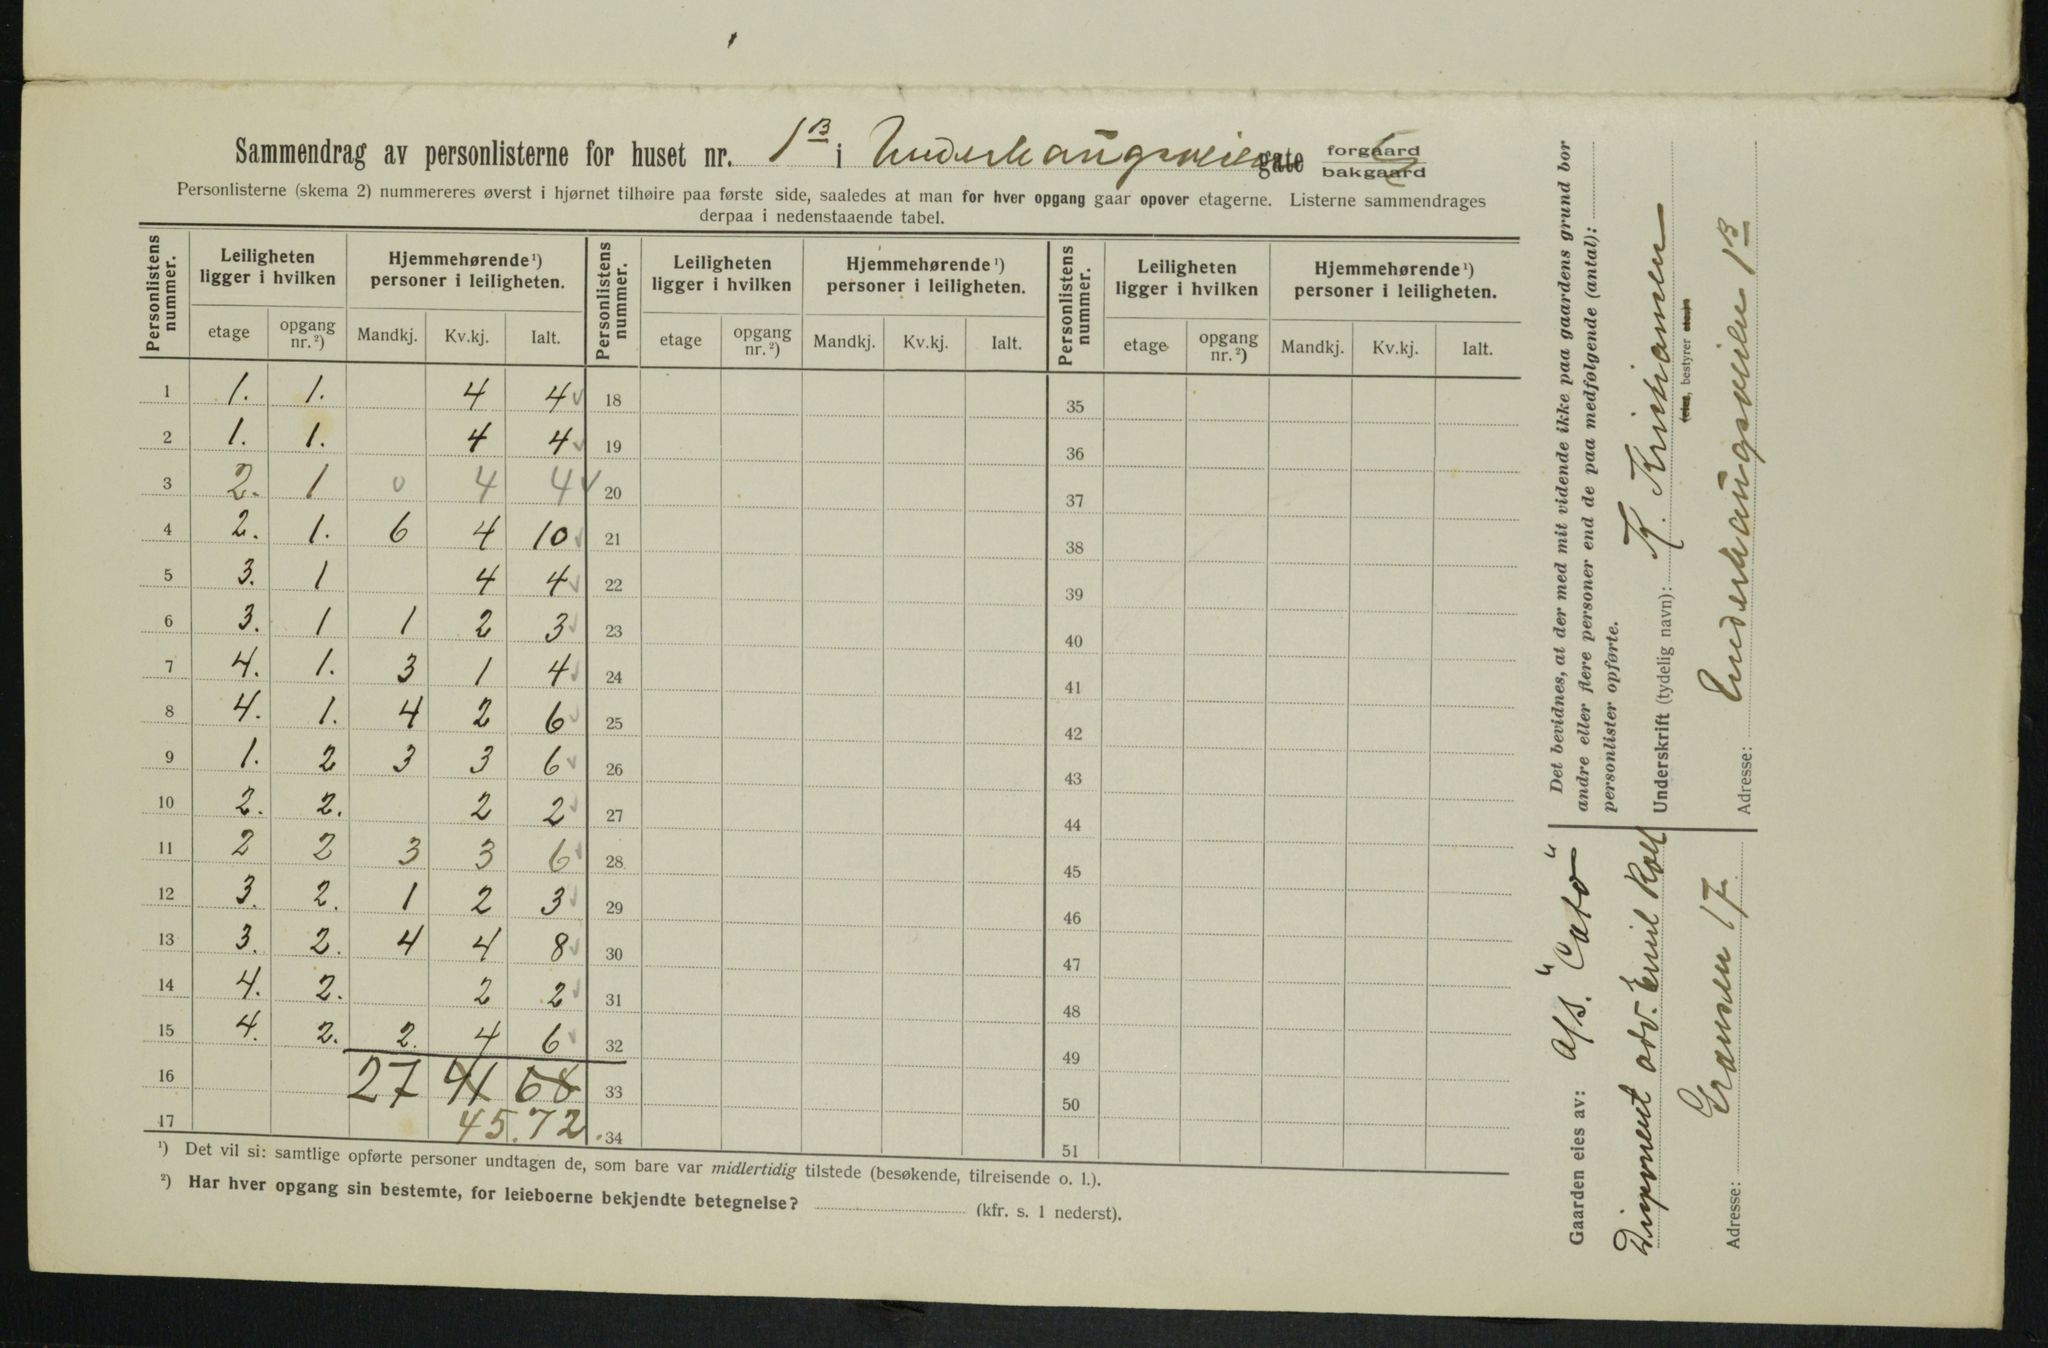 Sammendrag av personlisterne for huset nr. 1B i Underhaugsveien gate forgaard bakgaard
Personlisterne (skema 2) nummereres øverst i hjørnet tilhøire paa første side, saaledes at man for hver opgang gaar opover etagerne. Listerne sammendrages
derpaa i nedenstaaende tabel.
Personlistens nummer. Leiligheten ligger i hvilken Hjemmehørende¹) personer i leiligheten. Personlistens nummer. Leiligheten ligger i hvilken Hjemmehørende¹) personer i leiligheten. Personlistens nummer. Leiligheten ligger i hvilken Hjemmehørende¹) personer i leiligheten.
etage opgang nr.²) Mandkj. Kv.kj. Ialt. etage opgang nr.²) Mandkj. Kv.kj. Ialt. etage opgang nr.²) Mandkj. Kv.kj. Ialt.
1 1. 1. 4 4 18 35
2 1. 1. 4 4 19 36
3 2. 1 0 4 4 20 37
4 2. 1. 6 4 10 21 38
5 3. 1 4 4 22 39
6 3. 1 1 2 3 23 40
7 4. 1. 3 1 4 24 41
8 4. 1. 4 2 6 25 42
9 1. 2 3 3 6 26 43
10 2. 2. 2 2 27 44
11 2 2 3 3 6 28 45
12 3. 2. 1 2 3 29 46
13 3. 2. 4 4 8 30 47
14 4. 2. 2 2 31 48
15 4. 2. 2. 4 6 32 49
16 27 41 68 33 50
17 45. 72 34 51
¹) Det vil si: samtlige opførte personer undtagen de, som bare var midlertidig tilstede (besøkende, tilreisende o. l.).
²) Har hver opgang sin bestemte, for leieboerne bekjendte betegnelse? (kfr. s. 1 nederst).
Det bevidnes, at der med mit vidende ikke paa gaardens grund bor
andre eller flere personer end de paa medfølgende (antal):
personlister opførte.
Underskrift (tydelig navn): K. Kristiansen
bestyrer
Adresse: Underhaugsveien 1B
Gaarden eies av: A/S. "Cato"
Disponent adv. Emil Roll
Adresse: Grænsen 17